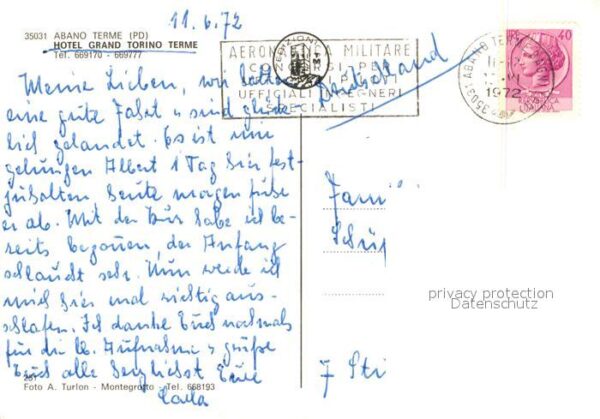 11.6.72
35031 ABANO TERME (PD)
HOTEL GRAND TORINO TERME
Tel. 669170 - 669777
AERONAUTICA MILITARE
CONCORSI PER
UFFICIALI INGEGNERI
SPECIALISTI
35031 ABANO TERME
1972
40
Deutschland
Meine Lieben, wir hatten
eine gute Fahrt u. sind glück-
lich gelandet. Es ist mir
gelungen Albert 1 Tag hier fest-
zuhalten, heute morgen fuhr
er ab. Mit der Kur habe ich be-
reits begonnen, der Anfang
schlaucht sehr. Nun werde ich
mich hier mal richtig aus-
schlafen. Ich danke Euch nochmals
für die lb. Aufnahme u. grüße
Euch alle herzlichst Eure
Carla
Fam
7 Stu
privacy protection
Datenschutz
Foto A. Turlon - Montegrotto - Tel. 668193